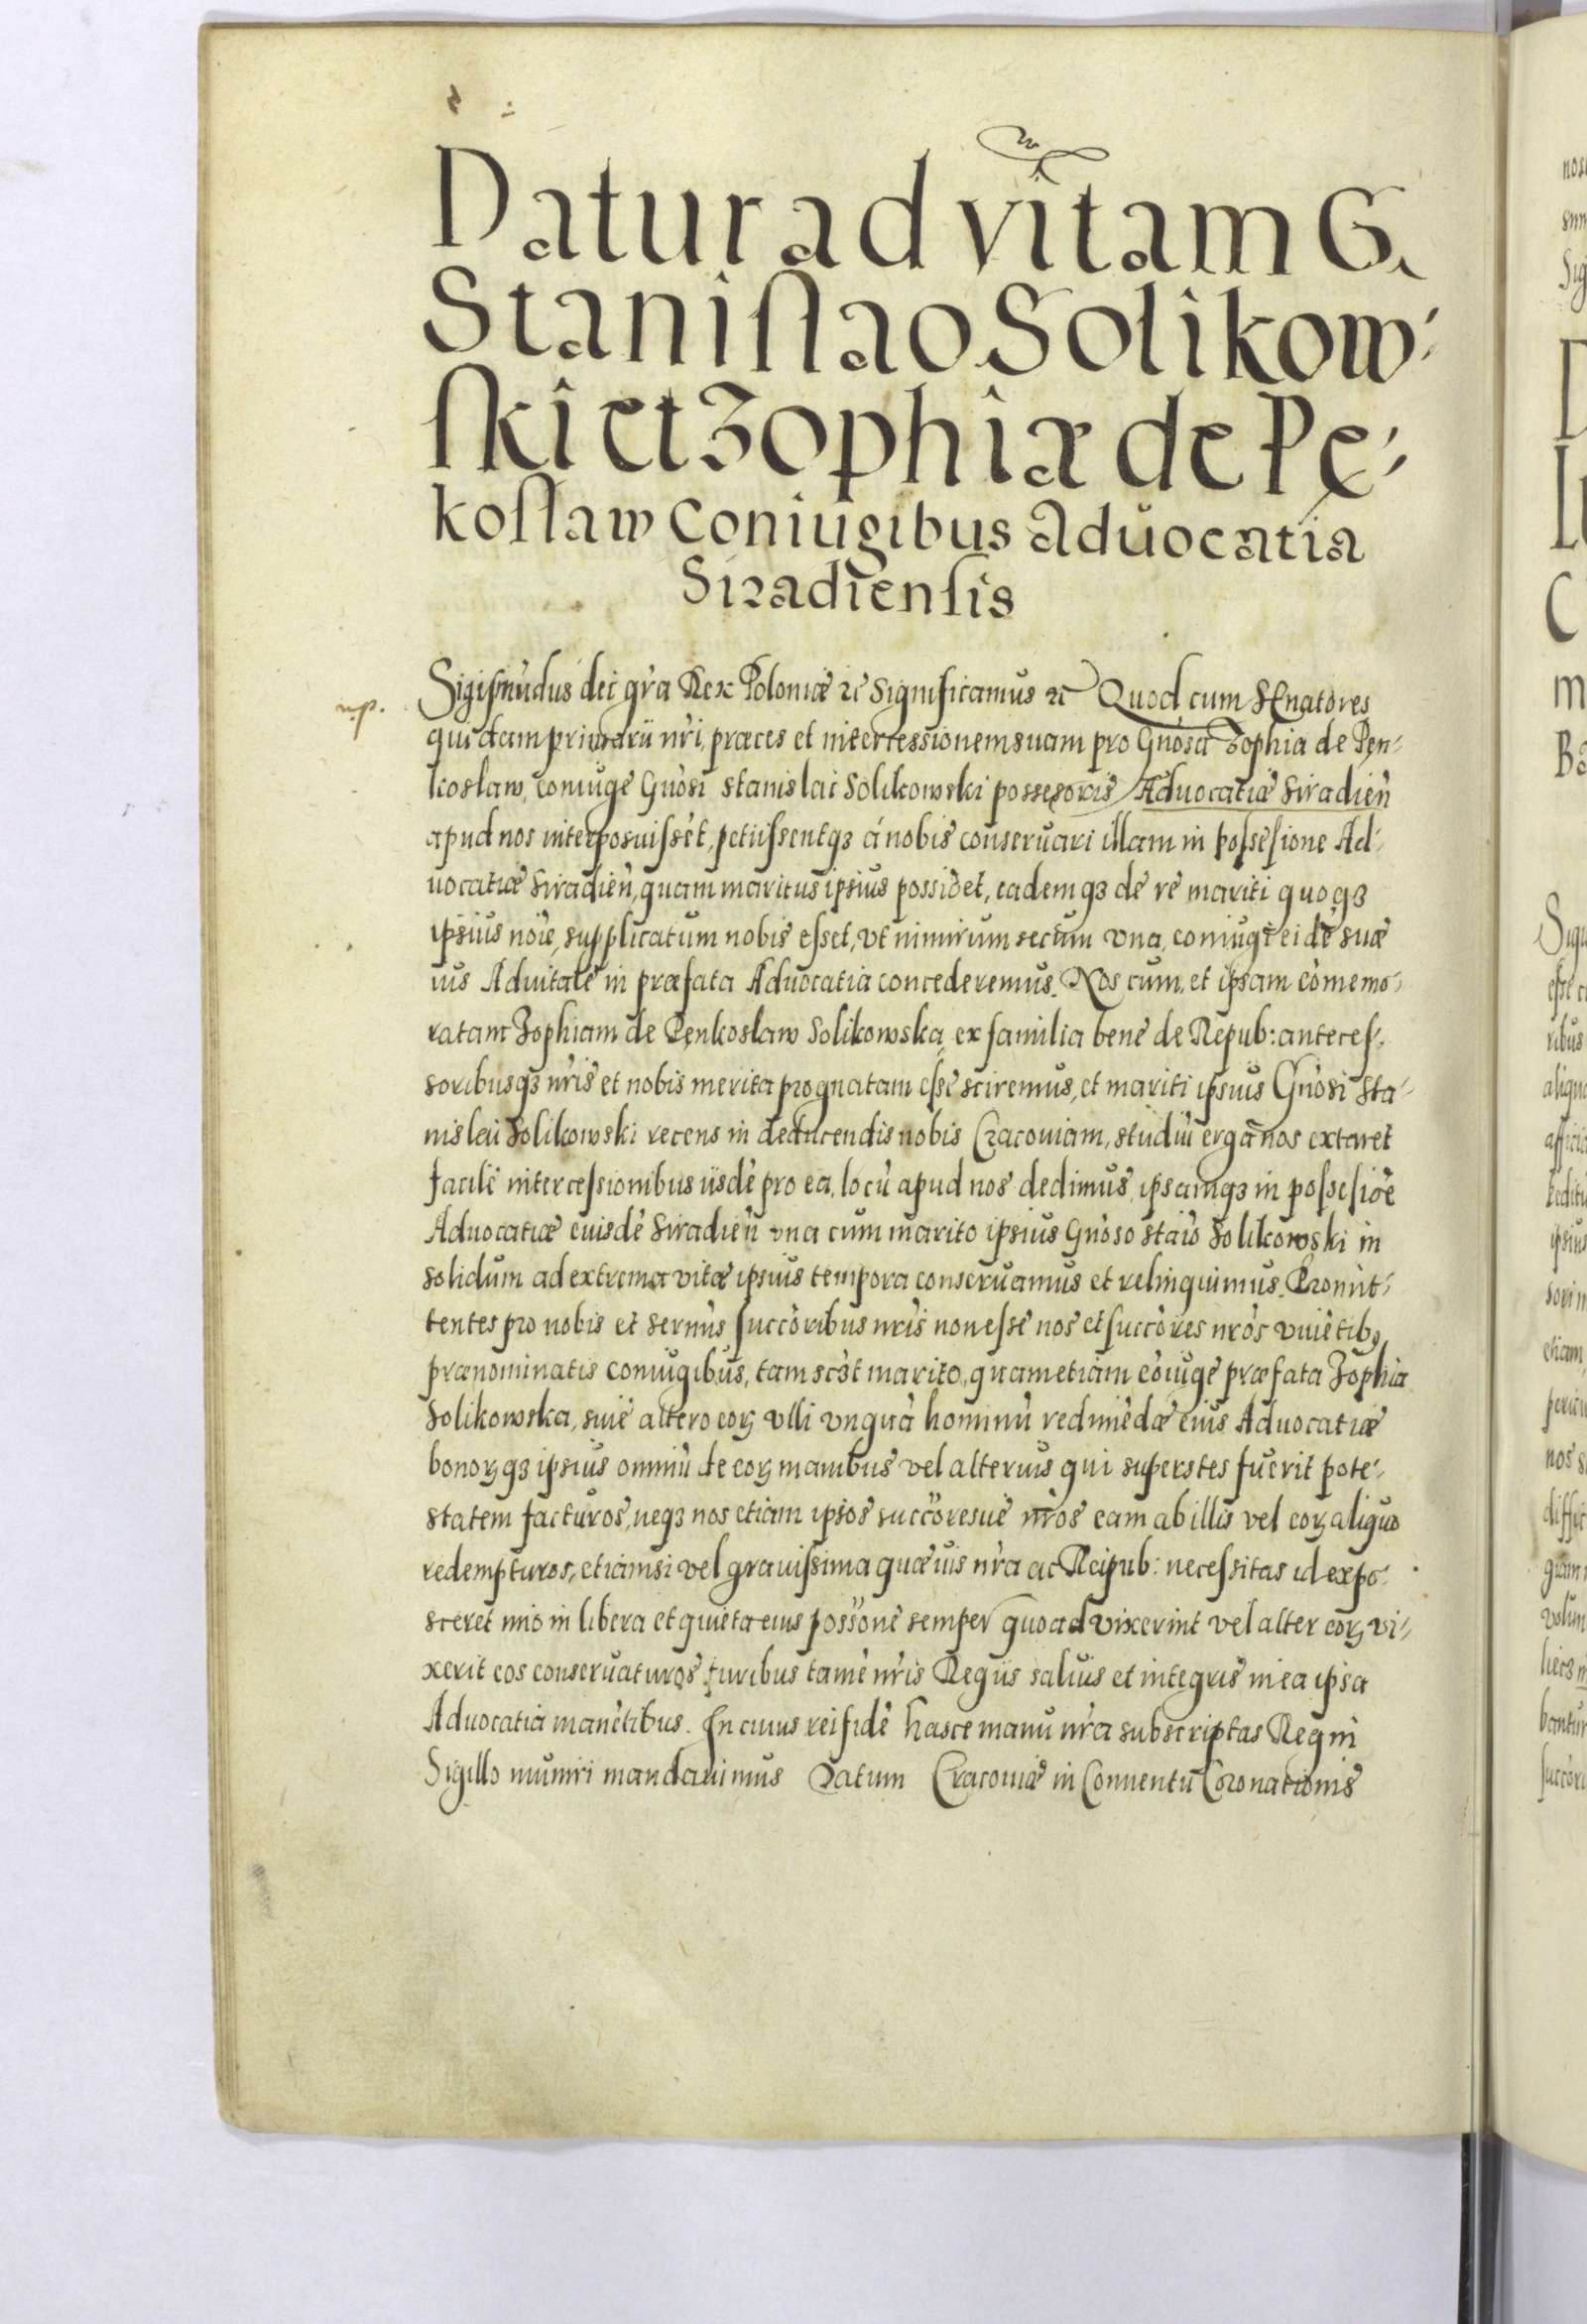 Datur ad vitam G.
Staniſlao Solikow-
ſki et Zophiæ de Pę-
koſlaw Coniugibus Aduocatia
Siradienſis
Sigiſmūdus dei gr̃a Rex Poloniæ ꝛc̃ Significamus ꝛc̃ Quod cum Senatores
n.p.
quidam primarii nr̃i, præces et intercessionem suam pro Gnosa Zophia de Pęn-
koslaw, coniuge Gnosi Stanislai Solikowski possesoris Aduocatiæ Siradieñ
apud nos interposuissēt, petiiſsentqꝫ à nobis conseruari illam in poſseſione Ad-
uocatiæ Siradieñ, quam maritus ipsius possidet, eademqꝫ de re mariti quoqꝫ
ipsius noīe, supplicatum nobis eſset, vt nimirum secum vna, coniugi eidē suæ
ius Aduitale in præfata Aduocatia concederemus. Nos cum, et ipsam com̃emo-
ratam Zophiam de Pęnkoslaw Solikowska, ex familia bene de Repub: anteceſ-
soribusqꝫ nr̃is et nobis merita prognatam eſse sciremus, et mariti ipsius Gnosi Sta-
nislai Solikowski recens in deducendis nobis Cracouiam, studiū erga nos extaret
facile interceſsionibus iisdē pro ea, locū apud nos dedimus, ipsamqꝫ in poſseſiōe
Aduocatiæ euisdē Siradieñ vna cum marito ipsius Gnoso Staıō Solikowski in
solidum ad extrema vitæ ipsius tempora conseruamus et relinquimus. Promit-
tentes pro nobis et sermis succoribus nr̃is non eſse nos et succores nr̃os viuētibꝫ
prænominatis coniugibus, tam scꝫt marito, quam etiam cōiuge præfata Zophia
Solikowska, siue altero eorꝫ vlli vnquā hominū redimēdæ eius Aduocatiæ
bonorꝫqꝫ ipsius omniū de eorꝫ manibus vel alterius qui superstes fuerit pote-
statem facturos, neqꝫ nos etiam ipsos succoresue nr̃os eam ab illis vel eorꝫ aliquo
redempturos, etiamsi vel grauiſsima quæuis nr̃a ac Reipub: neceſsitas id expo-
sceret imo in libera et quieta eius poss̃one semper quoad vixerint vel alter eorꝫ vi-
xerit eos conseruaturos, iuribus tamē nr̃is Regiis saluis et integris in ea ipsa
Aduocatia manētibus. In cuius rei fidē hasce manu nr̃a subscriptas Regni
Sigillo muniri mandauimus Datum Cracouiæ in Conuentu Coronationis